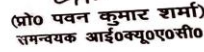 (प्रो० पवन कुमार शर्मा)
समन्वयक आई०क्यू०ए०सी०